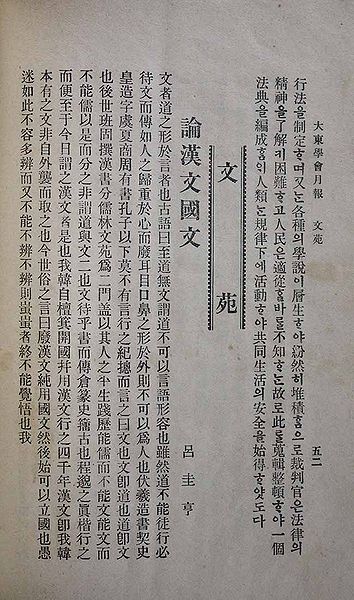 大東學會月報 文苑 五二
行法을制定ᄒᆞ며又는各種의學說이層生ᄒᆞ야紛然히堆積ᄒᆞᆷ으로裁判官은法律의
精神을了解키困難ᄒᆞ고人民은適從ᄒᆞᆯ바를不知ᄒᆞ는故로此를蒐輯整頓ᄒᆞ야一個
法典을編成ᄒᆞᆷ이人類는規律下에活動ᄒᆞ야共同生活의安全을始得ᄒᆞ얏도다
文苑
論漢文國文
呂圭亨
文者道之形於言者也古語曰至道無文謂道不可以言語形容也雖然道不能徒行必
待文而傳如人之歸重於心而廢耳目口鼻之形於外則不可以爲人也伏羲造書契史
皇造字虞夏商周有書孔子以下莫不有言行之紀摠而言之曰文也文卽道也道卽文
也後世班固撰漢書分儒林文苑爲二門盖以其人之平生踐歷能儒而不能文能文而
不能儒以是而分之非謂道與文二也文待乎書而傳倉篆史籒古也程邈之眞楷行之
而便至于今日謂之漢文者是也我韓自檀箕開國幷用漢文行之四千年漢文卽我韓
本有之文非自外襲而取之也今世俗之言曰廢漢文純用國文然後始可以立國也愚
迷如此不容多辨而又不能不辨不辨則蚩蚩者終不能覺悟也我